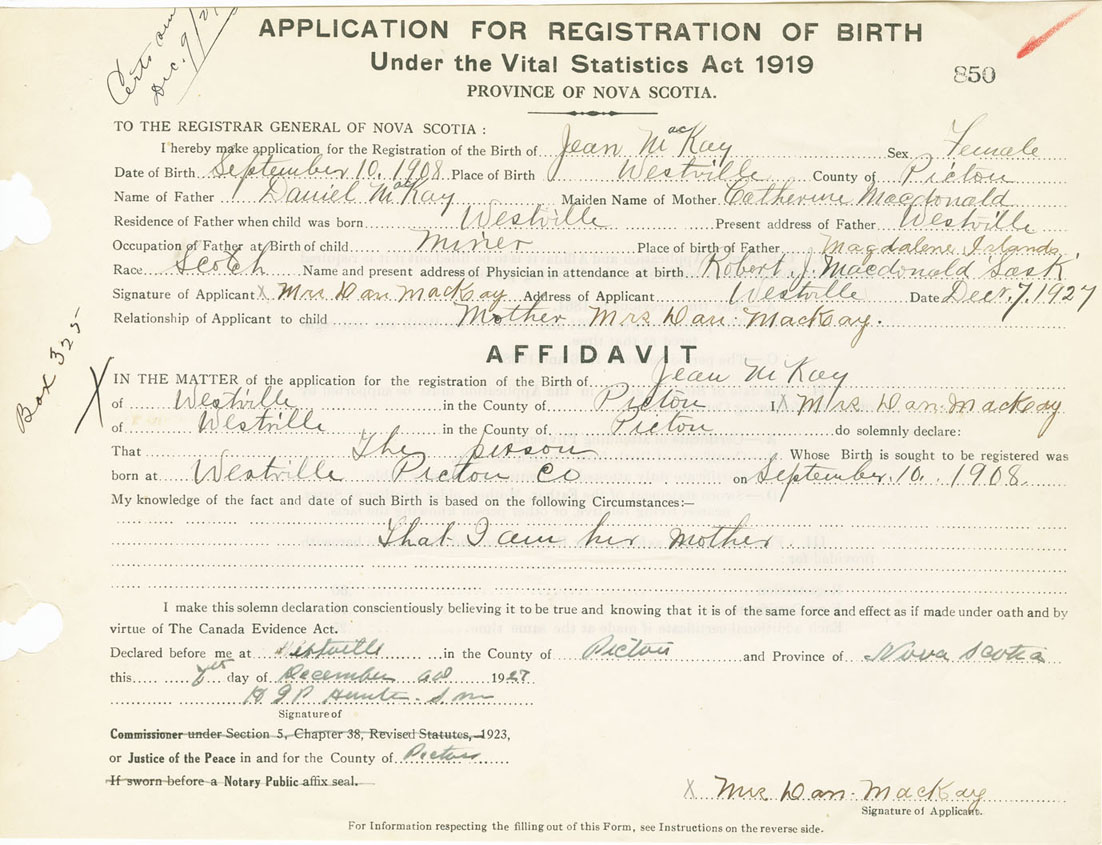 Certs
Dec. 9/27
APPLICATION FOR REGISTRATION OF BIRTH
Under the Vital Statistics Act 1919
850
PROVINCE OF NOVA SCOTIA.
TO THE REGISTRAR GENERAL OF NOVA SCOTIA :
I hereby make application for the Registration of the Birth of Jean MacKay Sex Female
Date of Birth September 10, 1908 Place of Birth Westville County of Pictou
Name of Father Daniel MacKay Maiden Name of Mother Catherine Macdonald
Residence of Father when child was born Westville Present address of Father Westville
Occupation of Father at Birth of child Miner Place of birth of Father Magdalene Islands
Race Scotch Name and present address of Physician in attendance at birth Robert. J. Macdonald Sask
Signature of Applicant X Mrs Dan MacKay Address of Applicant Westville Date Decr. 7. 1927
Relationship of Applicant to child Mother Mrs Dan. MacKay.
Box 325
AFFIDAVIT
X IN THE MATTER of the application for the registration of the Birth of Jean McKay
of Westville in the County of Pictou I X Mrs Dan. MacKay
of Westville in the County of Pictou do solemnly declare:
That The person Whose Birth is sought to be registered was
born at Westville Pictou Co on September. 10. 1908
My knowledge of the fact and date of such Birth is based on the following Circumstances:—
That I am her mother
I make this solemn declaration conscientiously believing it to be true and knowing that it is of the same force and effect as if made under oath and by
virtue of The Canada Evidence Act.
Declared before me at Westville in the County of Pictou and Province of Nova Scotia
this 7th day of December ad 1927
H G P Hunter S m
Signature of
Commissioner under Section 5, Chapter 38, Revised Statutes, 1923,
or Justice of the Peace in and for the County of Pictou
If sworn before a Notary Public affix seal.
X Mrs Dan. MacKay
Signature of Applicant.
For Information respecting the filling out of this Form, see Instructions on the reverse side.